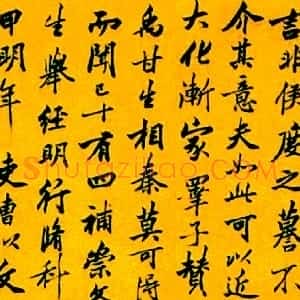 言非伊度之譽不
介其意夫此可以近
大化漸家睪子贊
禹甘生相秦莫可得
而聞已十有四補崇文
生舉經明行脩科
甲明年吏曹以文
Shufaziliao.COM